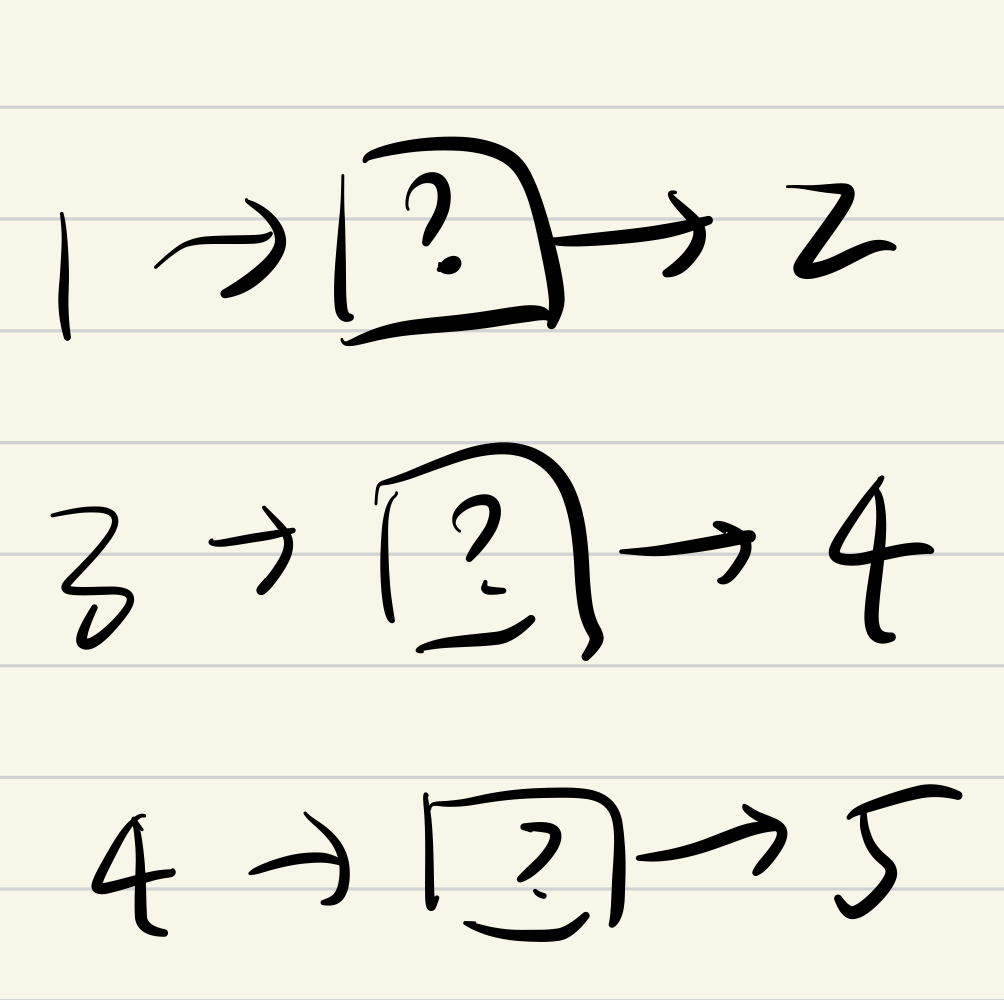 1 → ? → 2
3 → ? → 4
4 → ? → 5